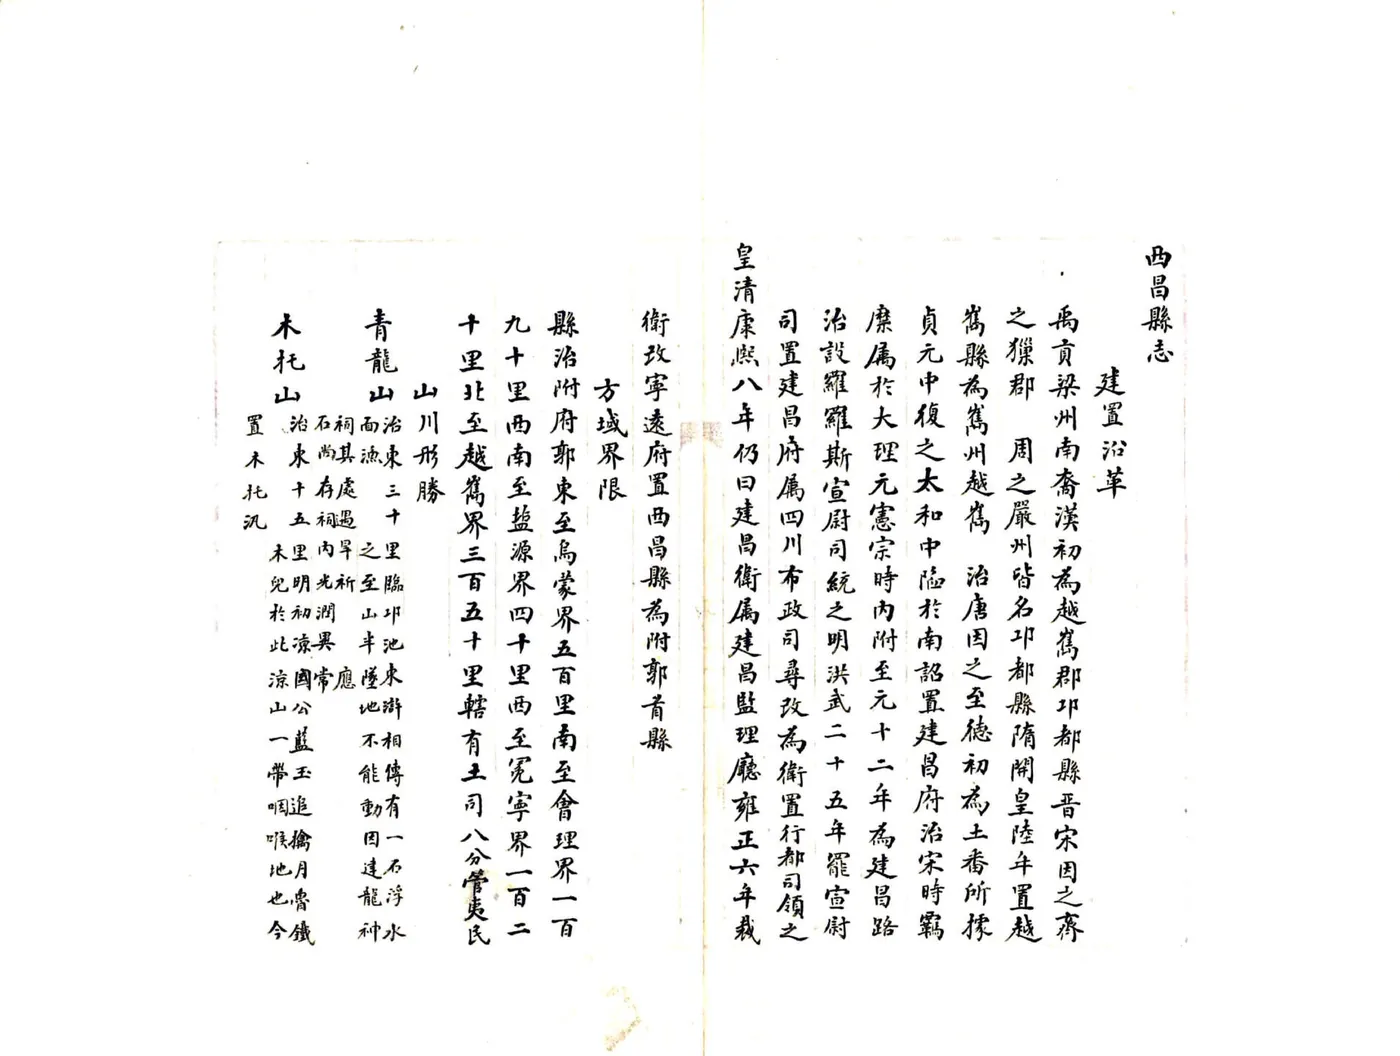 西昌縣志
建置沿革
禹貢梁州南裔漢初為越嶲郡邛都縣晋宋因之齊
之獵郡 周之嚴州皆名邛都縣隋開皇陸年置越
嶲縣為嶲州越嶲 治唐因之至德初為土番所據
貞元中復之太和中陷於南詔置建昌府治宋時羈
縻属於大理元憲宗時内附至元十二年為建昌路
治設羅羅斯宣尉司統之明洪武二十五年罷宣尉
司置建昌府属四川布政司尋改為衛置行都司領之
皇清康熙八年仍曰建昌衛属建昌監理廳雍正六年裁
衛改寧遠府置西昌縣為附郭首縣
方域界限
縣治附府郭東至烏蒙界五百里南至會理界一百
九十里西南至盐源界四十里西至冕寧界一百二
十里北至越嶲界三百五十里轄有土司八分管夷民
山川形勝
青龍山治東三十里臨邛池東澨相傳有一石浮水
面漁 之至山半墜地不能動因建龍神
祠其處遇旱祈 應
石尚存祠内光潤異常
木托山治東十五里明初凉國公藍玉追擒月魯鐵
木兒於此凉山一帶咽喉地也今
置木托汛